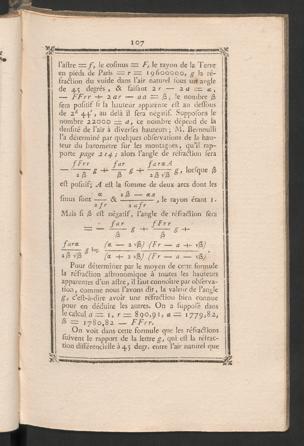 107
l'astre = f, le cosinus = F, le rayon de la Terre
en pieds de Paris = r = 19600000, g la ré-
fraction du vuide dans l'air naturel sous un angle
de 45 degrés, & faisant 2r — 2a = a,
— FFrr + 2ar — aa = ß, le nombre ß
sera positif si la hauteur apparente est au dessous
de 2° 44', au delà il sera négatif. Supposons le
nombre 22000 = a, ce nombre dépend de la
densité de l'air à diverses hauteurs; M. Bernoulli
l'a déterminé par quelques observations de la hau-
teur du barometre sur les montagnes, qu'il rap-
porte page 214; alors l'angle de réfraction sera
— fFrr/ß g + far/ß g + farαA/2ß√ß g, lorsque ß
est positif; A est la somme de deux arcs dont les
sinus sont α/2fr & 2ß — αa/2afr, le rayon étant 1.
Mais si ß est négatif, l'angle de réfraction sera
= — far/ß g + fFrr/ß g +
farα/2ß√ß g log. (α — 2√ß) (Fr — a + √ß)/(α + 2√ß) (Fr — a — √ß).
Pour déterminer par le moyen de cette formule
la réfraction astronomique à toutes les hauteurs
apparentes d'un astre, il faut connoître par observa-
tion, comme nous l'avons dit, la valeur de l'angle
g, c'est-à-dire avoir une réfraction bien connue
pour en déduire les autres. On a supposé dans
le calcul a = 1, r = 890,91, α = 1779,82,
ß = 1780,82 — FFrr.
On voit dans cette formule que les réfractions
suivent le rapport de la lettre g, qui est la réfrac-
tion différencielle à 45 degr. entre l'air naturel que